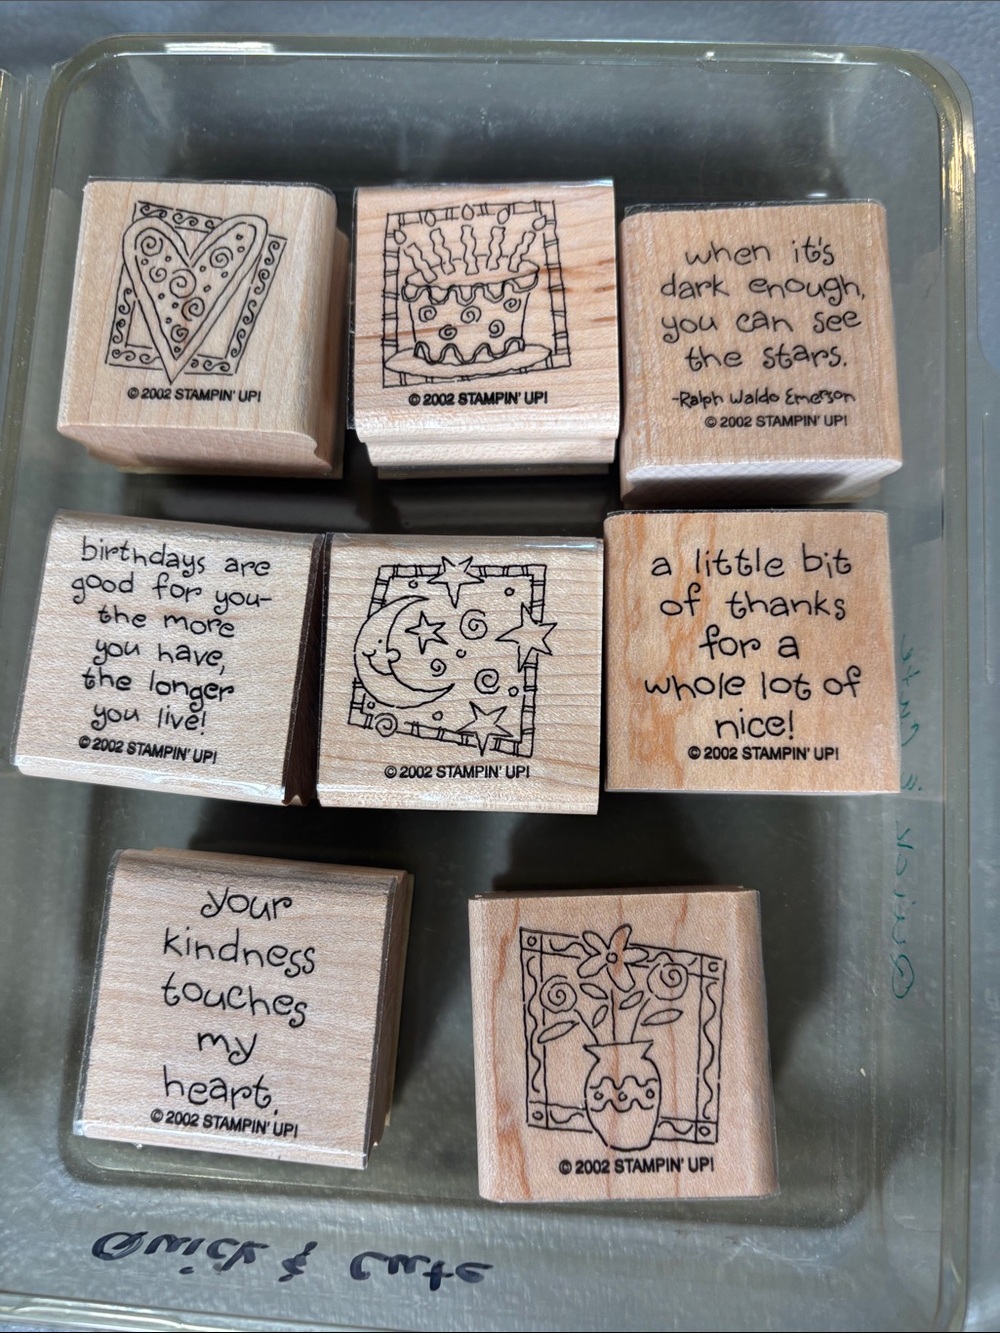 © 2002 STAMPIN' UP!
© 2002 STAMPIN' UP!
when it's
dark enough,
you can see
the stars.
-Ralph Waldo Emerson
© 2002 STAMPIN' UP!
birthdays are
good for you-
the more
you have,
the longer
you live!
© 2002 STAMPIN' UP!
© 2002 STAMPIN' UP!
a little bit
of thanks
for a
whole lot of
nice!
© 2002 STAMPIN' UP!
your
kindness
touches
my
heart.
© 2002 STAMPIN' UP!
© 2002 STAMPIN' UP!
Quick & Cute
Quick & Cute